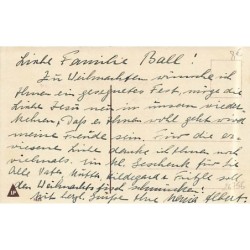 Liebe Familie Ball!
Zu Weihnachten wünsche ich
Ihnen ein gesegnetes Fest, möge die
Liebe Jesu neu in unsern
daß er Ihnen voll geht wird
meine Freude sein. Für die er-
wiesene Liebe danke ich Ihnen noch
vielmals. Ein kl. Geschenk für Sie
Alle Vater, Mutter, Hildegard u.
den Weihnachtstisch schmücken.
Mit herzl. Grüße Ihre Maria Albert